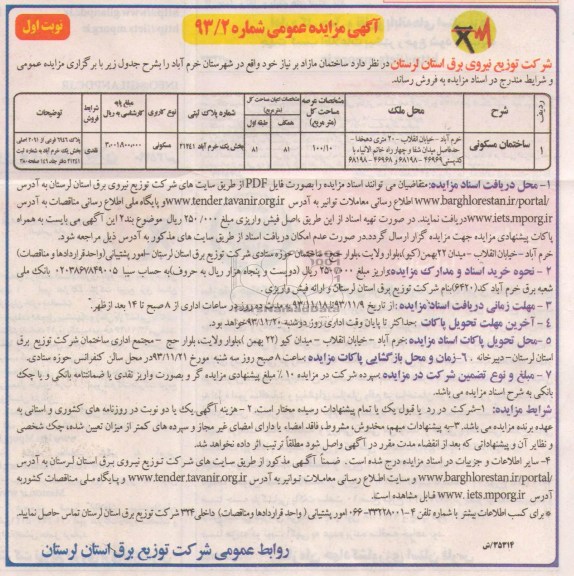 آگهی مزایده عمومی شماره ۹۳/۲
نوبت اول
شرکت توزیع نیروی برق استان لرستان در نظر دارد ساختمان مازاد بر نیاز خود واقع در شهرستان خرم آباد را بشرح جدول زیر با برگزاری مزایده عمومی
و شرایط مندرج در اسناد مزایده به فروش رساند.
ردیف شرح محل ملک مشخصات عرصه مساحت کل (متر مربع) مشخصات اعیان مساحت کل (متر مربع) همکف طبقه اول شماره پلاک ثبتی نوع کاربری مبلغ پایه کارشناسی به ریال شرایط فروش توضیحات
۱ ساختمان مسکونی خرم آباد - خیابان انقلاب - ۲۰ متری دهخدا - حدفاصل میدان شفا و چهار راه خاتم الانبیاء با کدپستی ۴۶۹۶۹ - ۶۸۱۹۸ و ۴۶۹۶۸ - ۶۸۱۹۸ ۱۰۰/۱۰ ۸۱ ۸۱ بخش یک خرم آباد ۲۱۲۴۱ مسکونی نقدی
۱- محل دریافت اسناد مزایده: متقاضیان می توانند اسناد مزایده را بصورت فایل PDF از طریق سایت های شرکت توزیع نیروی برق استان لرستان به آدرس
www.barghlorestan.ir/portal/ اطلاع رسانی معاملات توانیر به آدرس www.tender.tavanir.org.ir و پایگاه ملی اطلاع رسانی مناقصات به آدرس
www.iets.mporg.ir دریافت نمایند. در صورت تهیه اسناد از این طریق ،اصل فیش واریزی مبلغ ۲۵۰/۰۰۰ ریال موضوع بند۲ این آگهی می بایست به همراه
پاکات پیشنهادی مزایده جهت مزایده گزار ارسال گردد.در صورت عدم امکان دریافت اسناد از طریق سایت های مذکور به آدرس ذیل مراجعه شود.
خرم آباد - خیابان انقلاب - میدان ۲۲ بهمن (کیو)بلوار ولایت، بلوار حج - ساختمان حوزه ستادی شرکت توزیع برق استان لرستان - امور پشتیبانی (واحد قراردادها و مناقصات)
۲ - نحوه خرید اسناد و مدارک مزایده:واریز مبلغ ۲۵۰/۰۰۰ ریال (دویست و پنجاه هزار ریال به حروف)به حساب سیبا ۰۲۰۳۸۶۷۸۴۹۰۰۵ بانک ملی
شعبه برق خرم آباد کد(۶۴۲۰)بنام شرکت توزیع برق استان لرستان و ارائه فیش واریزی
۳ - مهلت زمانی دریافت اسناد مزایده :از تاریخ ۹۳/۱۱/۹تا ۹۳/۱۱/۱۸ به مدت ده روز در ساعات اداری از ۸ صبح تا ۱۴ بعد ازظهر.
۴ - آخرین مهلت تحویل پاکات :حداکثر تا پایان وقت اداری روز دوشنبه ۹۳/۱۱/۲۰خواهد بود.
۵- محل تحویل پاکات اسناد مزایده :خرم آباد - خیابان انقلاب - میدان کیو (۲۲ بهمن )،بلوار ولایت، بلوار حج - مجتمع اداری ساختمان شرکت توزیع برق
استان لرستان- دبیرخانه . ۶- زمان و محل بازگشایی پاکات مزایده :ساعت ۸ صبح روز سه شنبه مورخ ۹۳/۱۱/۲۱در محل سالن کنفرانس حوزه ستادی.
۷ - مبلغ و نوع تضمین شرکت در مزایده :سپرده شرکت در مزایده ۱۰٪ مبلغ پیشنهادی مزایده گر و بصورت واریز نقدی یا ضمانتنامه بانکی و یا چک
بانکی به شرح اسناد مزایده می باشد.
شرایط مزایده: ۱-شرکت در رد یا قبول یک یا تمام پیشنهادات رسیده مختار است. ۲ - هزینه آگهی یک یا دو نوبت در روزنامه های کشوری و استانی به
عهده برنده مزایده می باشد. ۳-به پیشنهادات مبهم، مخدوش، مشروط، فاقد امضاء یا دارای امضای غیر مجاز و سپرده های کمتر از میزان تعیین شده، چک شخصی
و نظایر آن و پیشنهاداتی که بعد از انقضاء مدت مقرر در آگهی واصل شود مطلقاً ترتیب اثر داده نخواهد شد.
۴- سایر اطلاعات و جزییات در اسناد مزایده درج شده است . ضمناً آگهی مذکور از طریق سایت های شرکت توزیع نیروی برق استان لرستان به آدرس
www.barghlorestan.ir/portal/ و سایت اطلاع رسانی معاملات توانیر به آدرس www.tender.tavanir.org.ir و پایگاه ملی مناقصات کشوربه
آدرس www. iets.mporg.ir قابل مشاهده است.
*برای کسب اطلاعات بیشتر با شماره تلفن ۴ - ۳۳۲۲۸۰۰۱-۰۶۶ امور پشتیبانی ( واحد قراردادها ومناقصات) داخلی ۳۲۴ شرکت توزیع برق استان لرستان تماس حاصل نمایید.
روابط عمومی شرکت توزیع برق استان لرستان
۳۵۳۱۴/ش